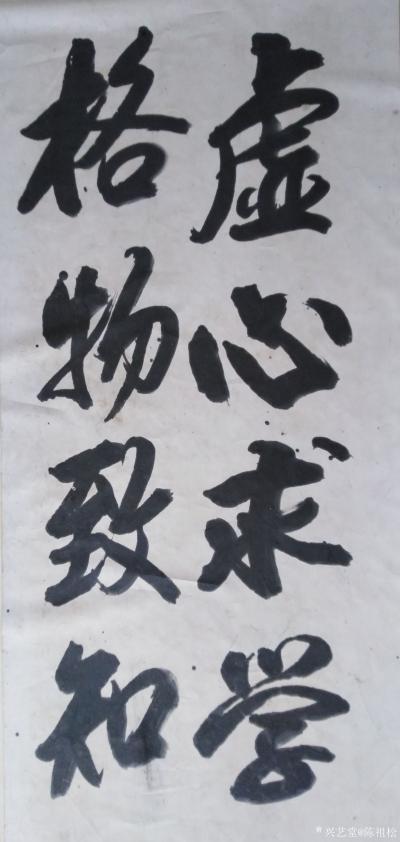 虚心求学
格物致知
兴艺堂@陈祖松